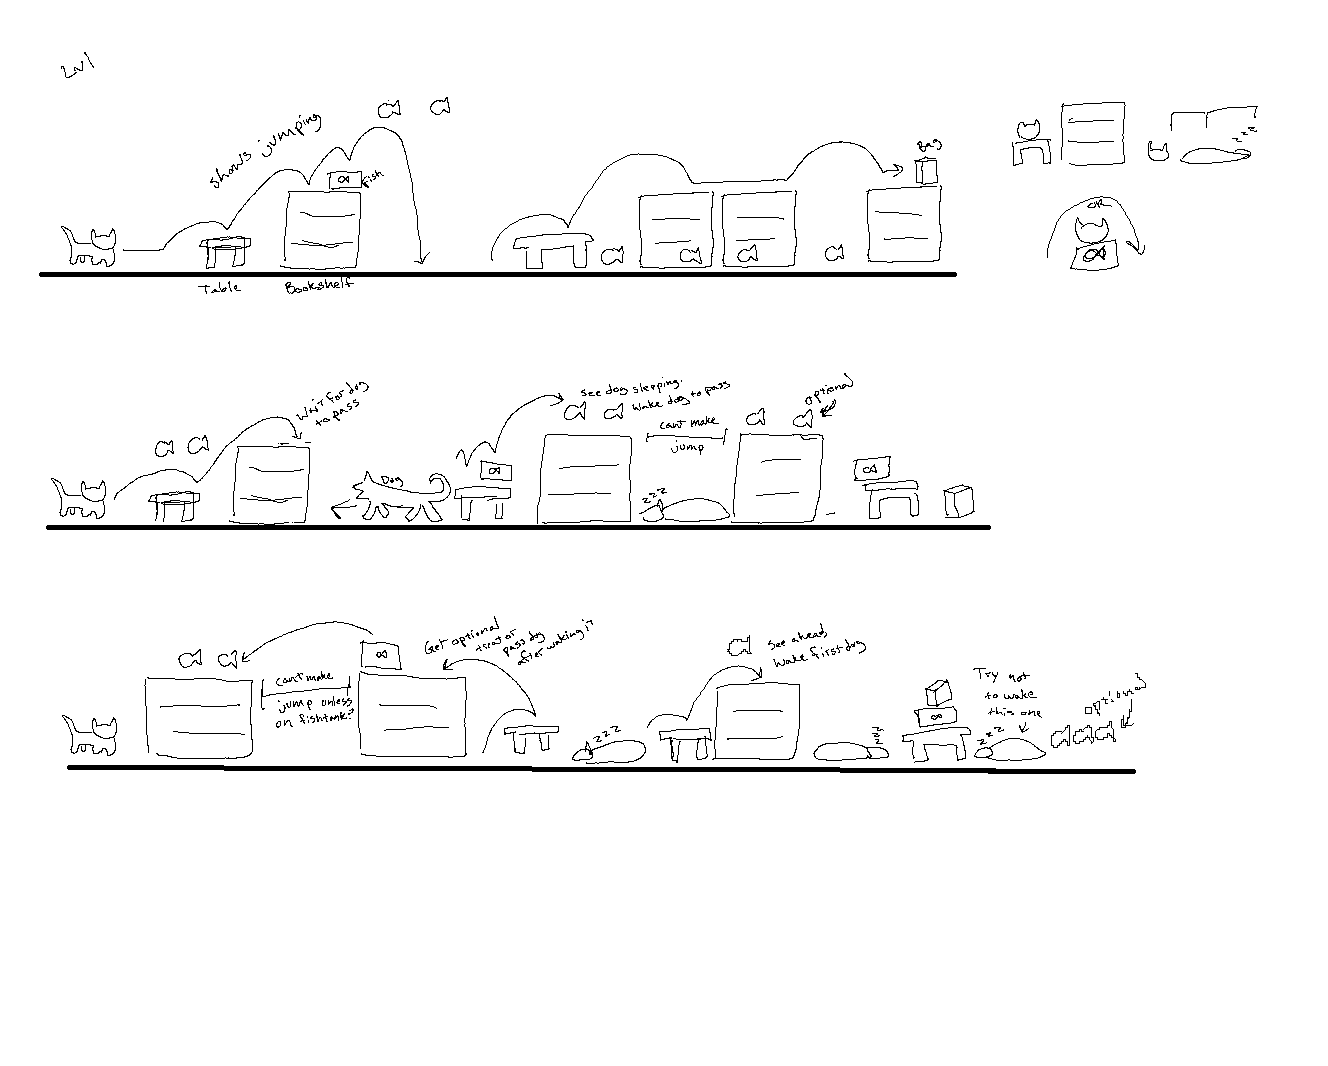 Lvl
shows jumping
fish
Bag
OR
Table
Bookshelf
Wait for dog
to pass
Dog
See dog sleeping.
Wake dog to pass
can't make
jump
optional
zzz
can't make
jump unless
on fishtank?
Get optional
treat or
pass dog
after waking it
zzz
See ahead,
wake first dog
zzz
Try not
to wake
this one
zzz
optional